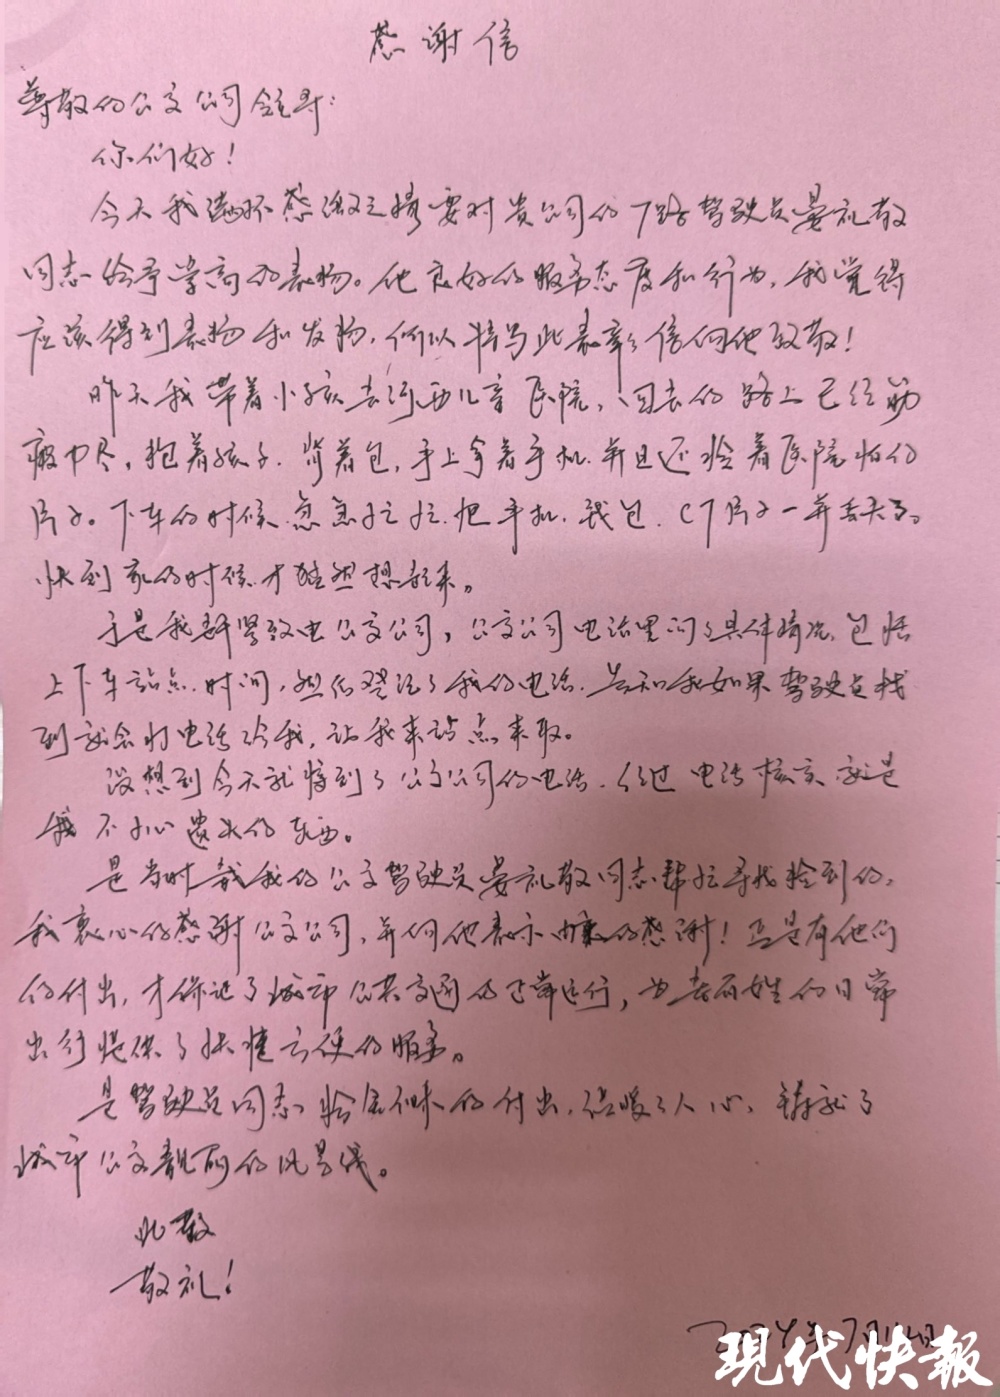 感谢信
尊敬的公交公司领导:
你们好!
今天我满怀感激之情要对贵公司的7路驾驶员晏礼敬
同志给予崇高的表扬。他良好的服务态度和行为,我觉得
应该得到表扬和发扬,所以特写此表彰信向他致敬!
昨天我带着小孩去河西儿童医院,回去的路上已经筋
疲力尽,抱着孩子.背着包,手上拿着手机.并且还拎着医院拍的
片子。下车的时候.急急忙忙.把手机.钱包.CT片子一并丢失了。
快到家的时候.才猛然想起来。
于是我赶紧致电公交公司,公交公司电话里问了具体情况,包括
上下车站点.时间,然后登记了我的电话.告知我如果驾驶员找
到就会打电话给我,让我来站点来取。
没想到今天就接到了公交公司的电话.经过电话核实就是
我不小心遗失的东西。
是当时载我的公交驾驶员晏礼敬同志帮忙寻找捡到的,
我衷心的感谢公交公司,并向他表示由衷的感谢!正是有他们
的付出,才保证了城市公共交通的正常运行,为老百姓的日常
出行提供了快捷方便的服务。
是驾驶员同志拾金不昧的付出,温暖了人心,铸就了
城市公交靓丽的风景线。
此致
敬礼!
2024年7月
现代快報